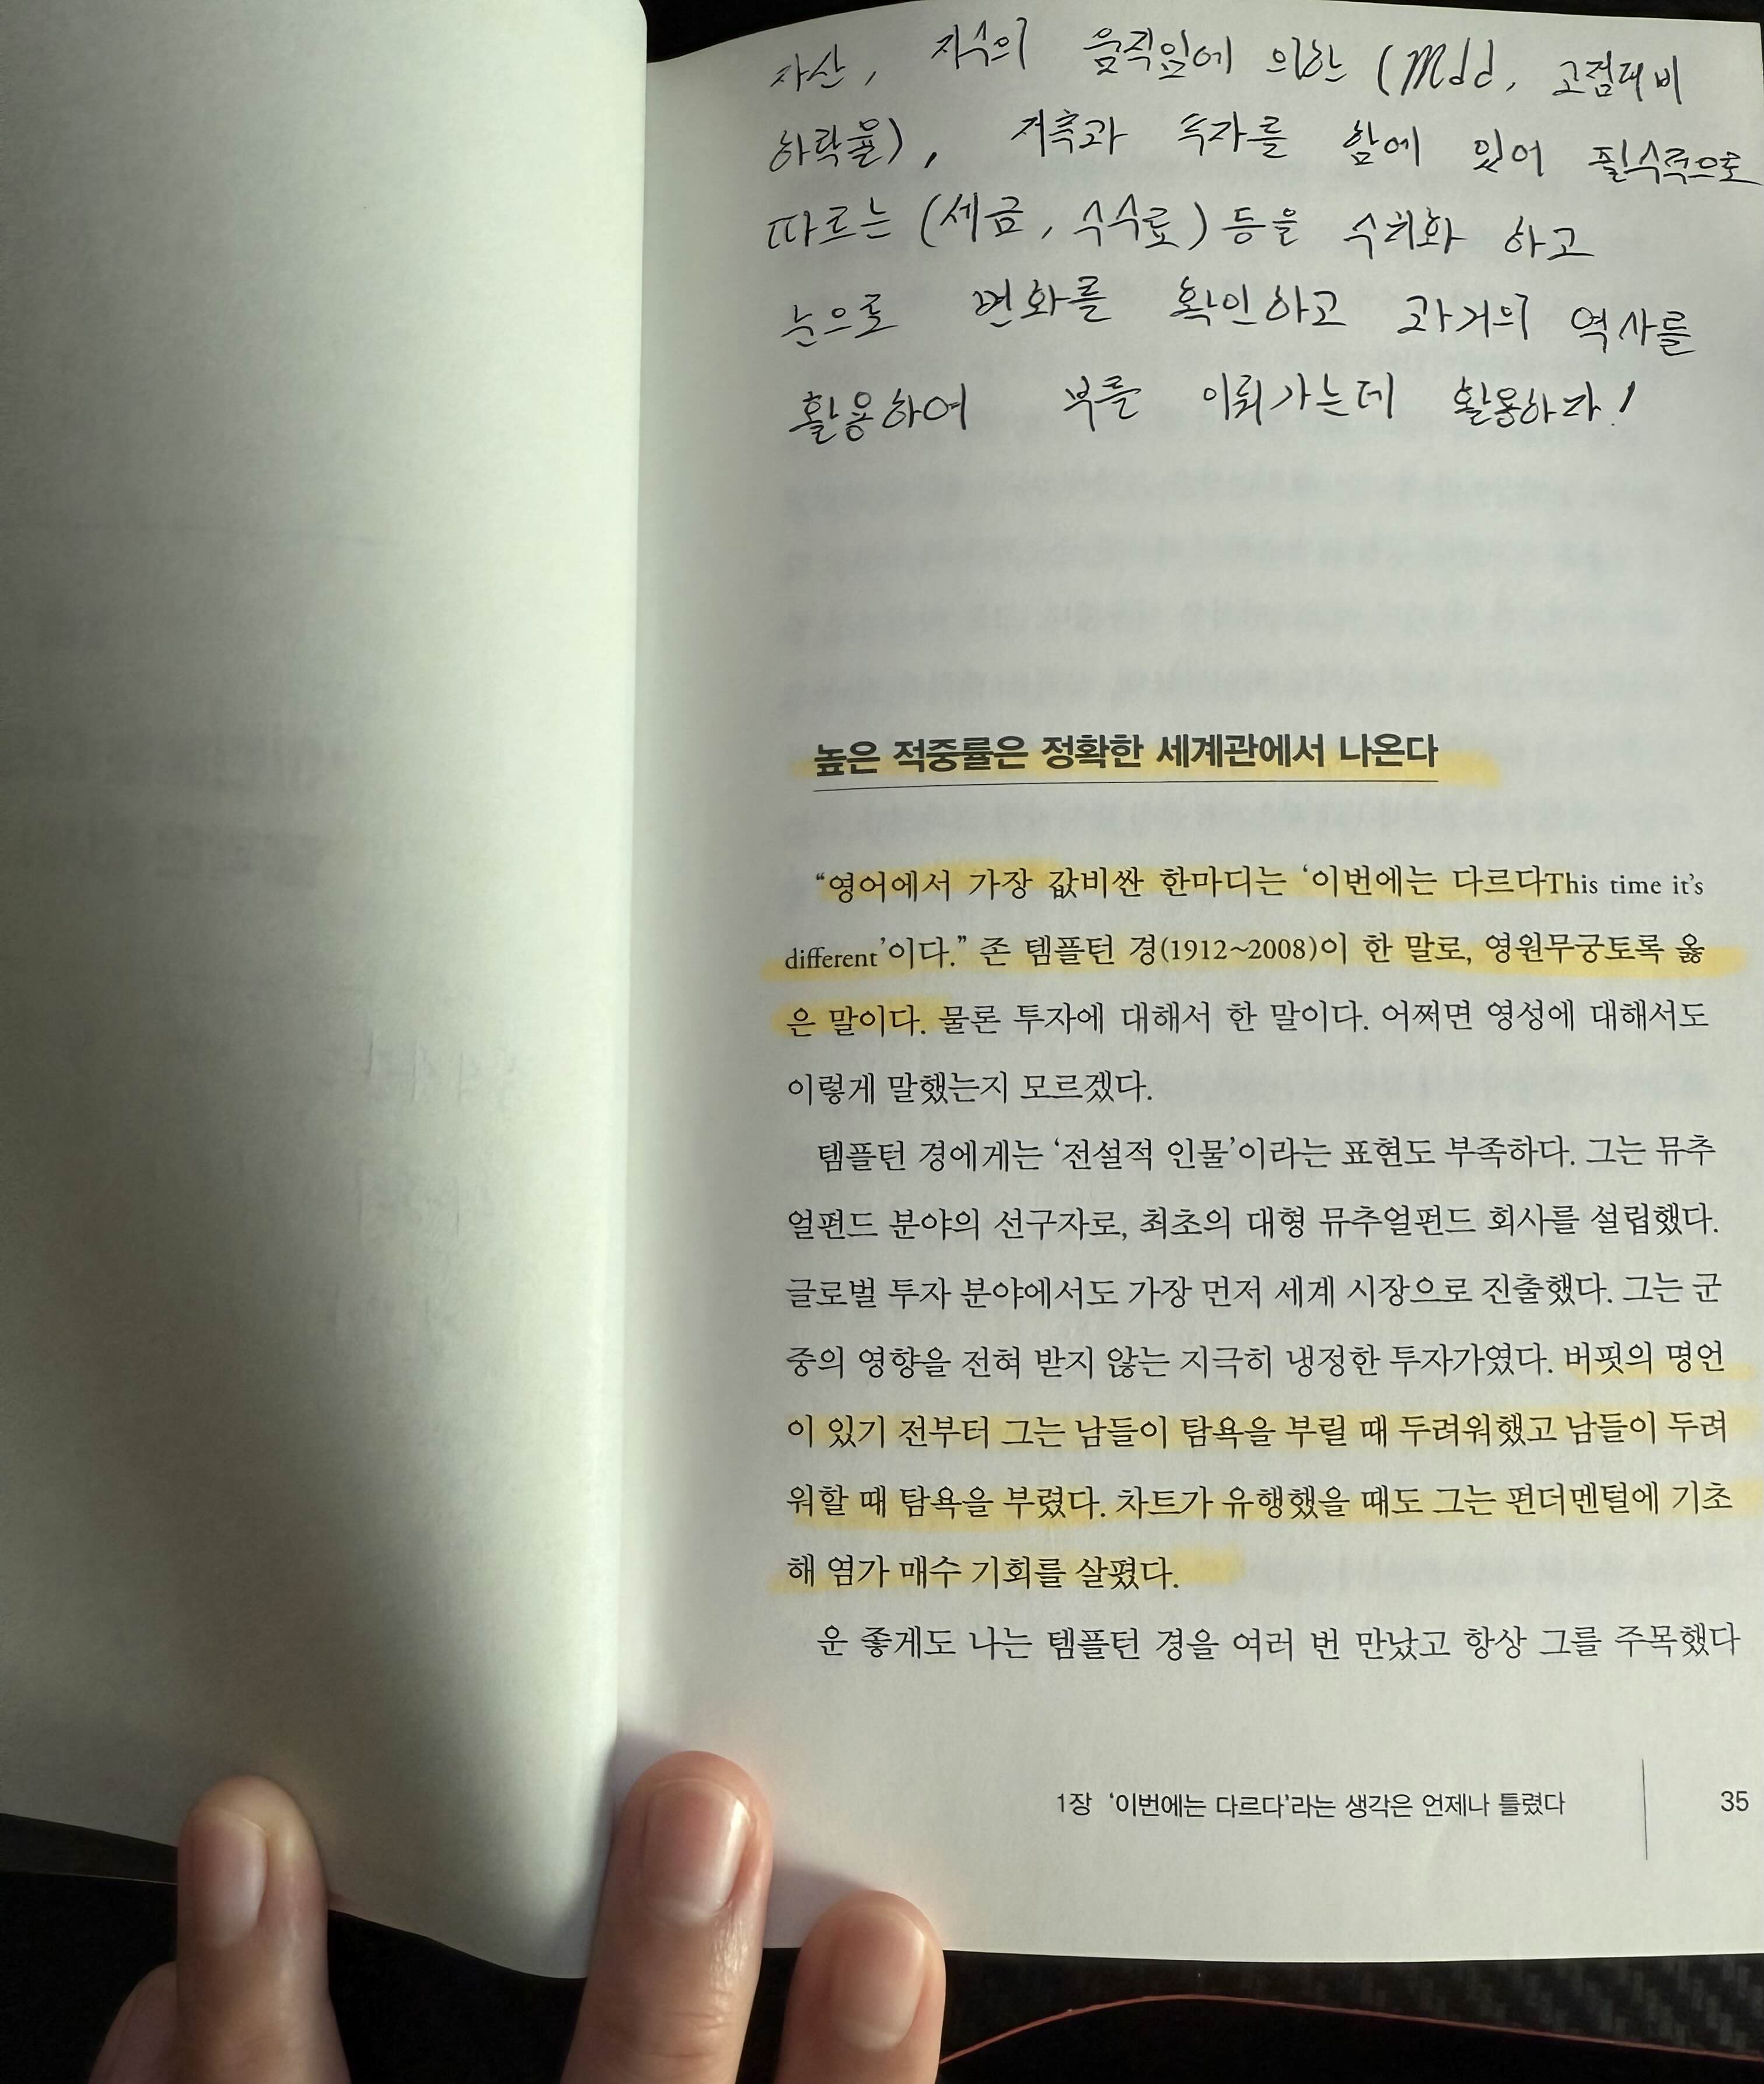 자산, 지수의 움직임에 의한 (Mdd, 고점대비
하락율), 저축과 투자를 함에 있어 필수적으로
따르는 (세금, 수수료) 등을 수치화 하고
눈으로 변화를 확인하고 과거의 역사를
활용하여 부를 이뤄가는데 활용하자!
높은 적중률은 정확한 세계관에서 나온다
“영어에서 가장 값비싼 한마디는 ‘이번에는 다르다This time it’s
different’이다.” 존 템플턴 경(1912~2008)이 한 말로, 영원무궁토록 옳
은 말이다. 물론 투자에 대해서 한 말이다. 어쩌면 영성에 대해서도
이렇게 말했는지 모르겠다.
템플턴 경에게는 ‘전설적 인물’이라는 표현도 부족하다. 그는 뮤추
얼펀드 분야의 선구자로, 최초의 대형 뮤추얼펀드 회사를 설립했다.
글로벌 투자 분야에서도 가장 먼저 세계 시장으로 진출했다. 그는 군
중의 영향을 전혀 받지 않는 지극히 냉정한 투자가였다. 버핏의 명언
이 있기 전부터 그는 남들이 탐욕을 부릴 때 두려워했고 남들이 두려
워할 때 탐욕을 부렸다. 차트가 유행했을 때도 그는 펀더멘털에 기초
해 염가 매수 기회를 살폈다.
운 좋게도 나는 템플턴 경을 여러 번 만났고 항상 그를 주목했다
1장 ‘이번에는 다르다’라는 생각은 언제나 틀렸다 35